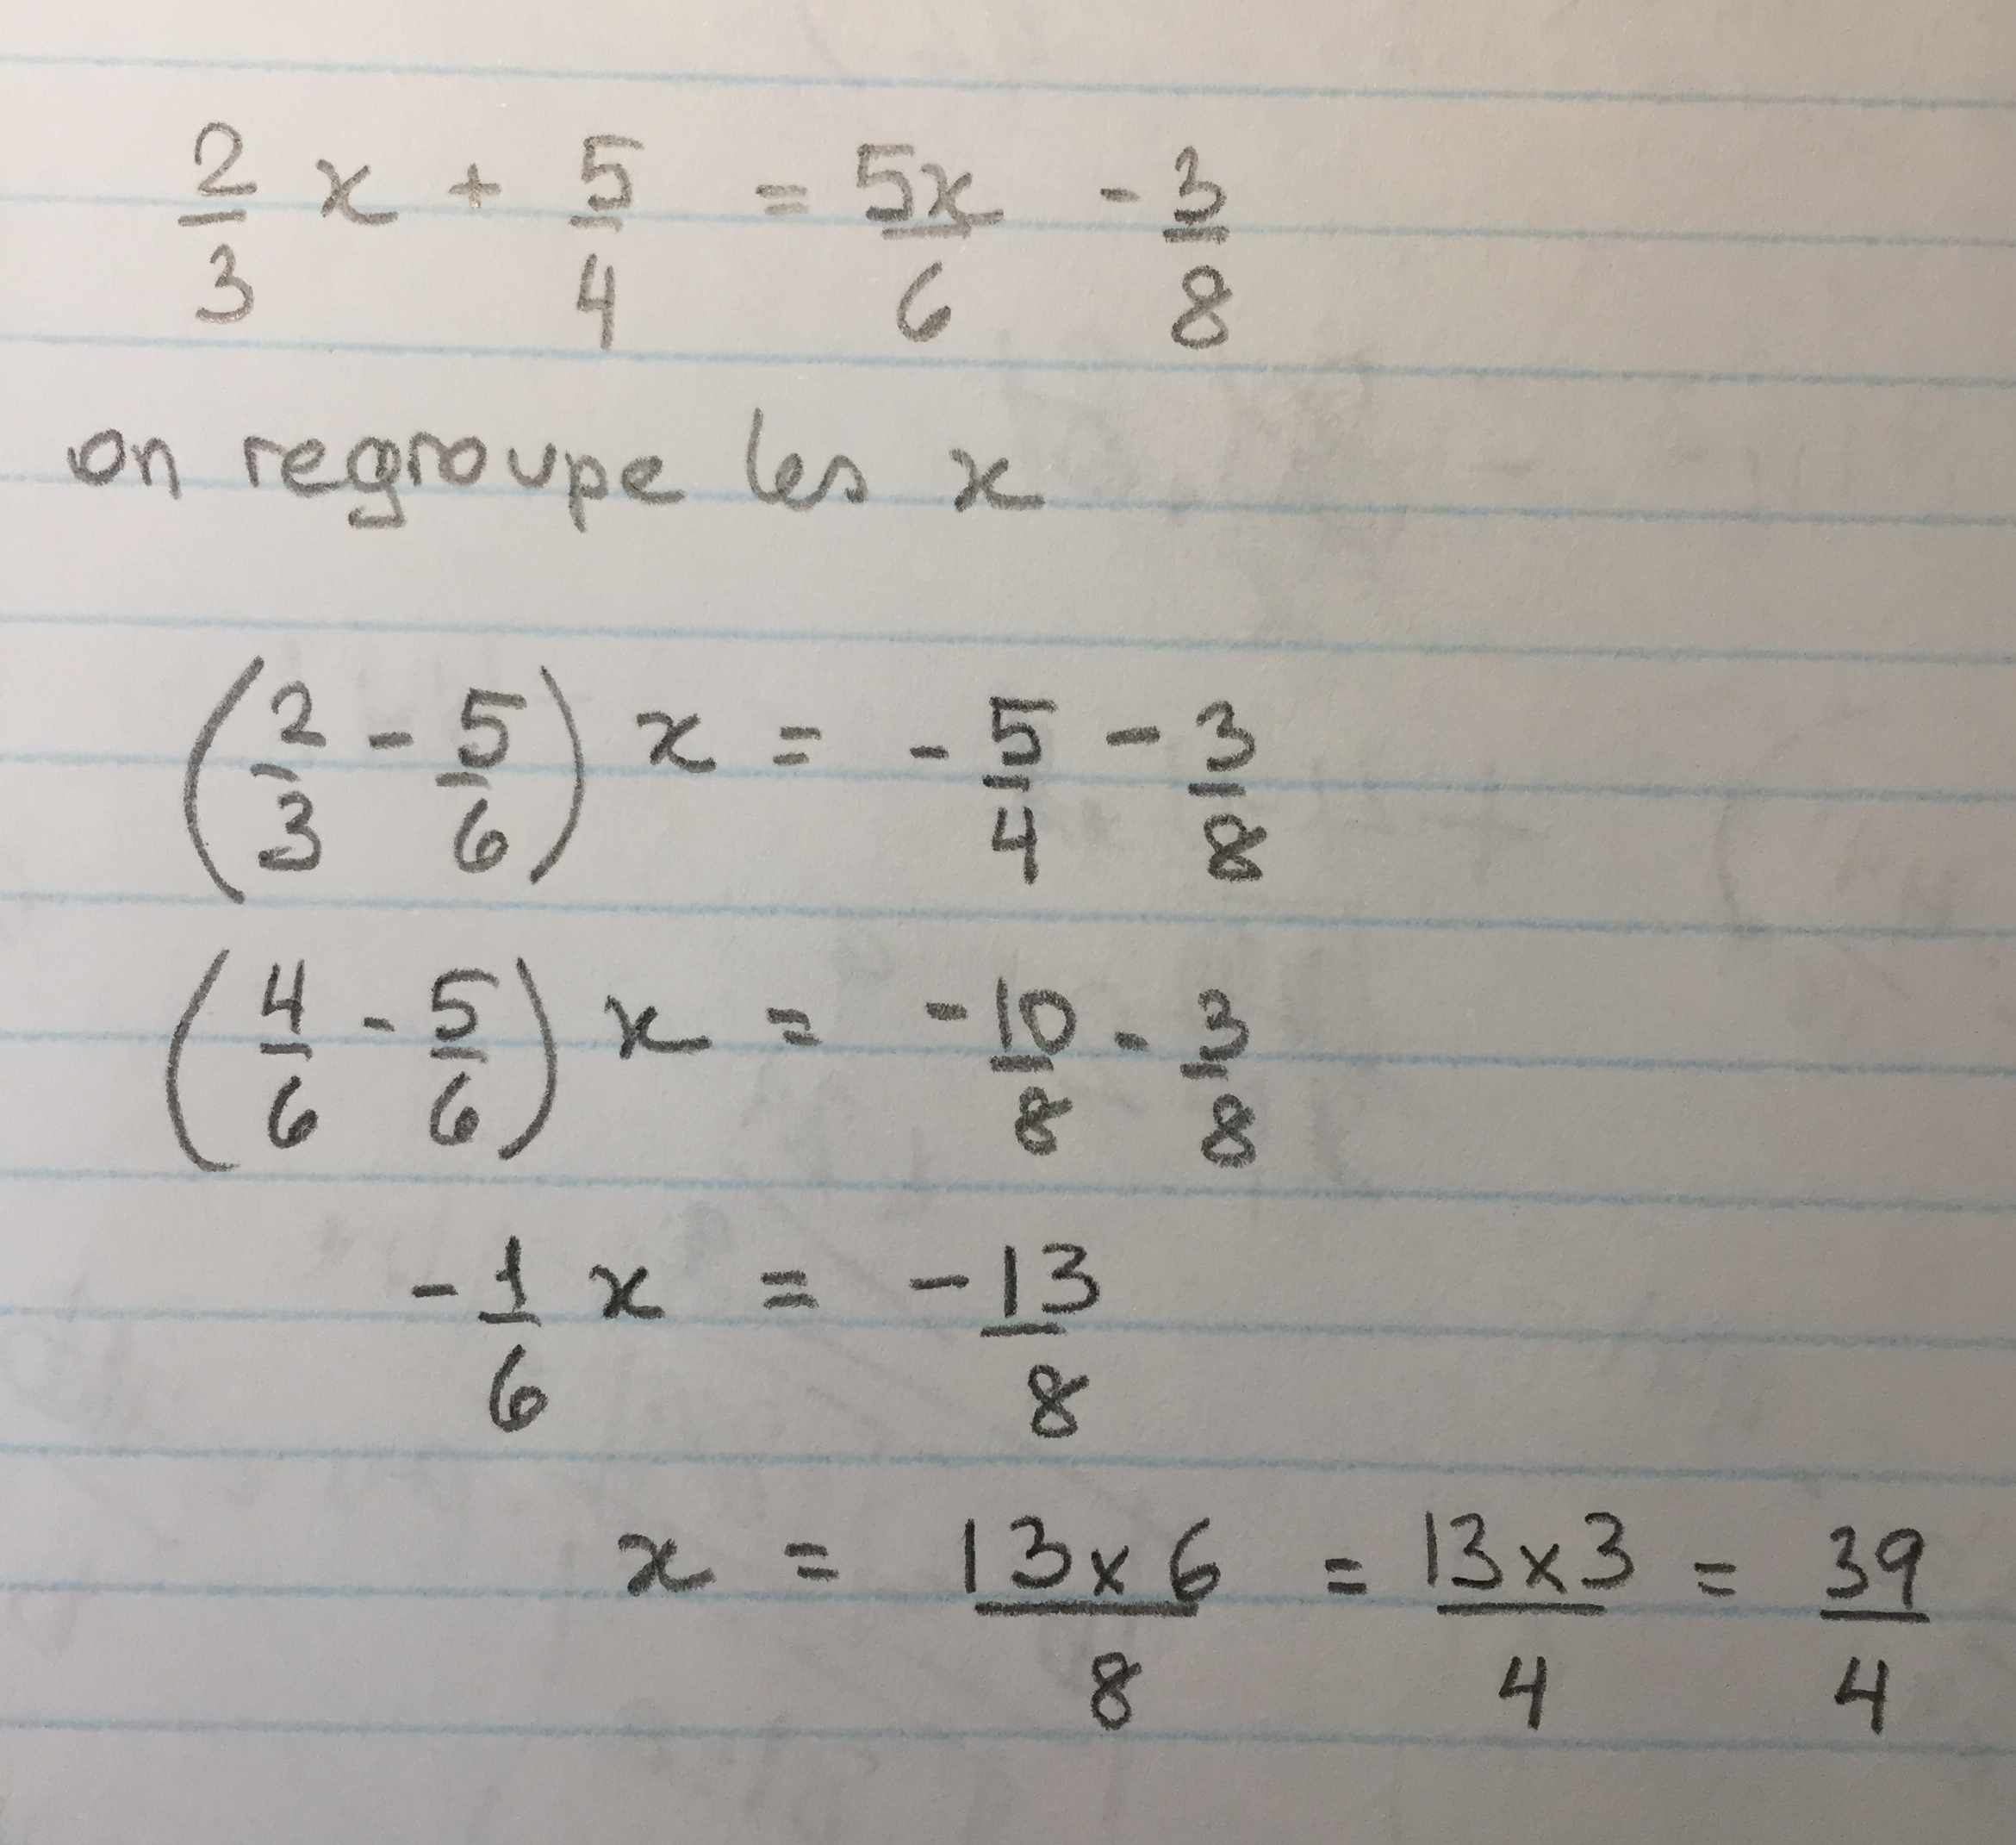 2/3 x + 5/4 = 5x/6 - 3/8
on regroupe les x
(2/3 - 5/6) x = - 5/4 - 3/8
(4/6 - 5/6) x = - 10/8 - 3/8
- 1/6 x = - 13/8
x = 13 x 6/8 = 13 x 3/4 = 39/4